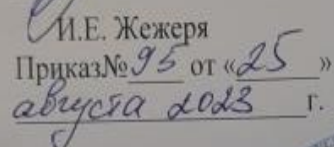 И.Е. Жежеря
Приказ№ 95 от «25»
августа 2023 г.